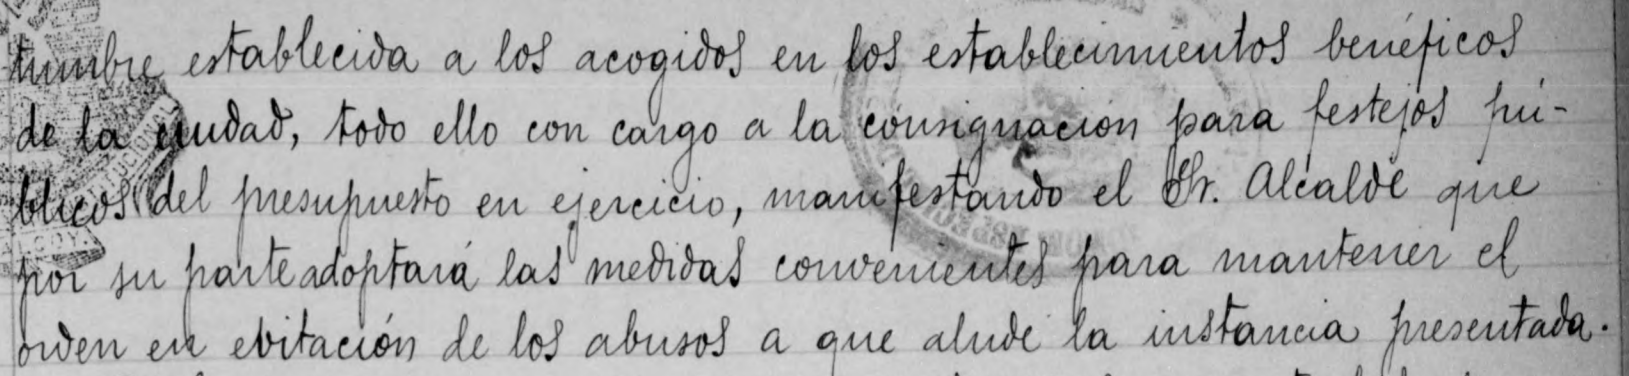 tumbre establecida a los acogidos en los establecimientos benéficos
de la ciudad, todo ello con cargo a la consignación para festejos pú-
blicos del presupuesto en ejercicio, manifestando el Sr. Alcalde que
por su parte adoptará las medidas convenientes para mantener el
orden en evitación de los abusos a que alude la instancia presentada.